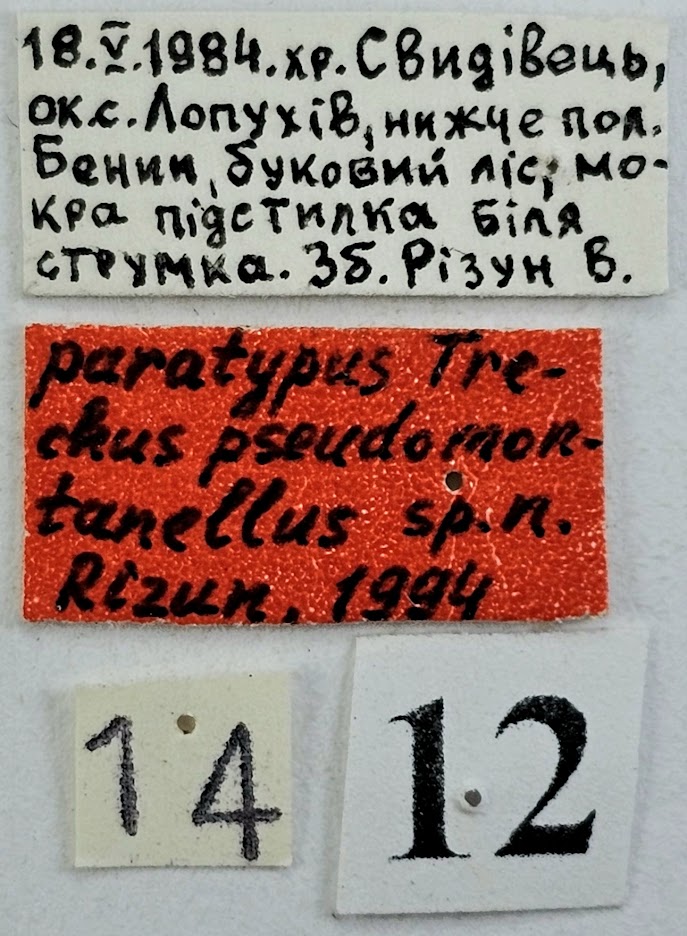 18.V.1984.хр.Свидівець,
ок.с.Лопухів, нижче пол.
Бенин, буковий ліс, мо-
кра підстилка біля
струмка. Зб. Різун В.
paratypus Tre-
chus pseudomon-
tanellus sp.n.
Rizun, 1994
14
12